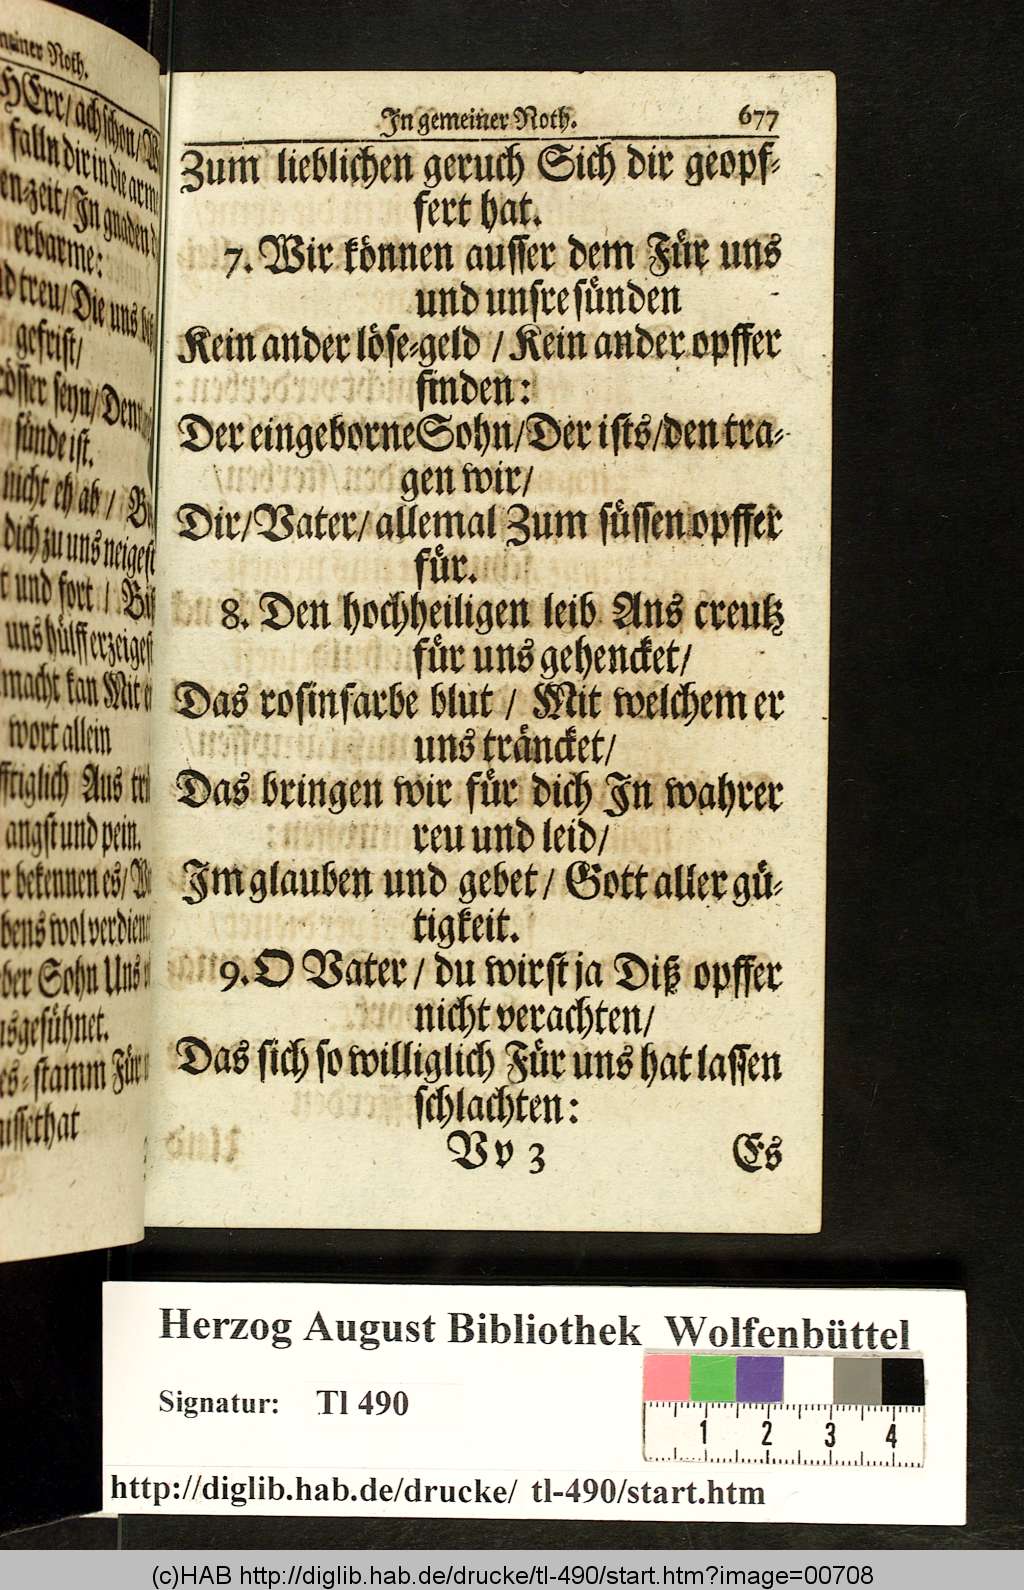 meiner Noth.
HErr/ ach schon/
falln dir in die arme
en-zeit/ In gnaden
erbarme:
nd treu/ Die uns
gefrist/
össer seyn/ Denn
sünde ist.
nicht eh ab /
dich zu uns neigest
t und fort / Biß
uns hülff erzeigest
macht kan Mit
wort allein
fftiglich Aus
angst und pein.
r bekennen es/
bens wol verdien
ber Sohn Uns
usgesühnet.
es-stamm Für
missethat
In gemeiner Noth. 677
Zum lieblichen geruch Sich dir geopf-
fert hat.
7. Wir können ausser dem Für uns
und unsre sünden
Kein ander löse-geld / Kein ander opffer
finden:
Der eingeborne Sohn/ Der ists/ den tra-
gen wir/
Dir/ Vater/ allemal Zum süssen opffer
für.
8. Den hochheiligen leib Ans creutz
für uns gehencket/
Das rosinfarbe blut / Mit welchem er
uns träncket/
Das bringen wir für dich In wahrer
reu und leid/
Im glauben und gebet/ Gott aller gü-
tigkeit.
9. O Vater / du wirst ja Diß opffer
nicht verachten/
Das sich so williglich Für uns hat lassen
schlachten:
Vv 3 Es
Herzog August Bibliothek Wolfenbüttel
Signatur: Tl 490
1 2 3 4
http://diglib.hab.de/drucke/ tl-490/start.htm
(c)HAB http://diglib.hab.de/drucke/tl-490/start.htm?image=00708